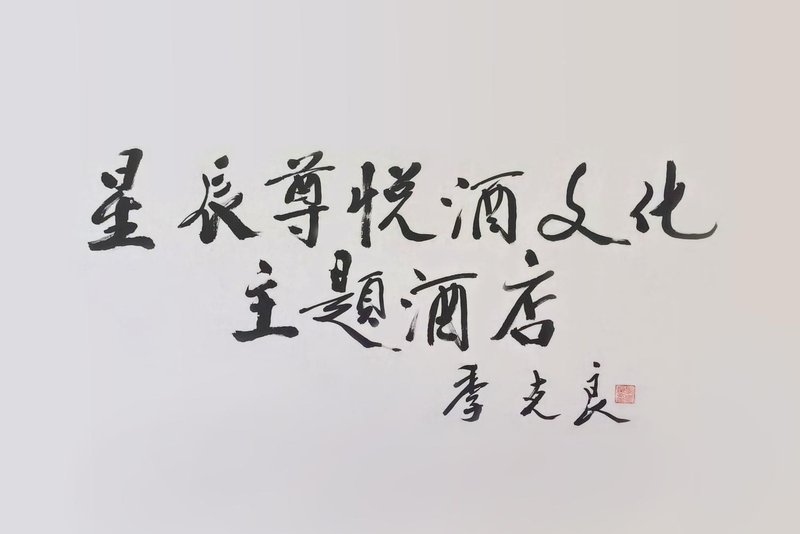 星辰尊悦酒文化
主题酒店
季克良